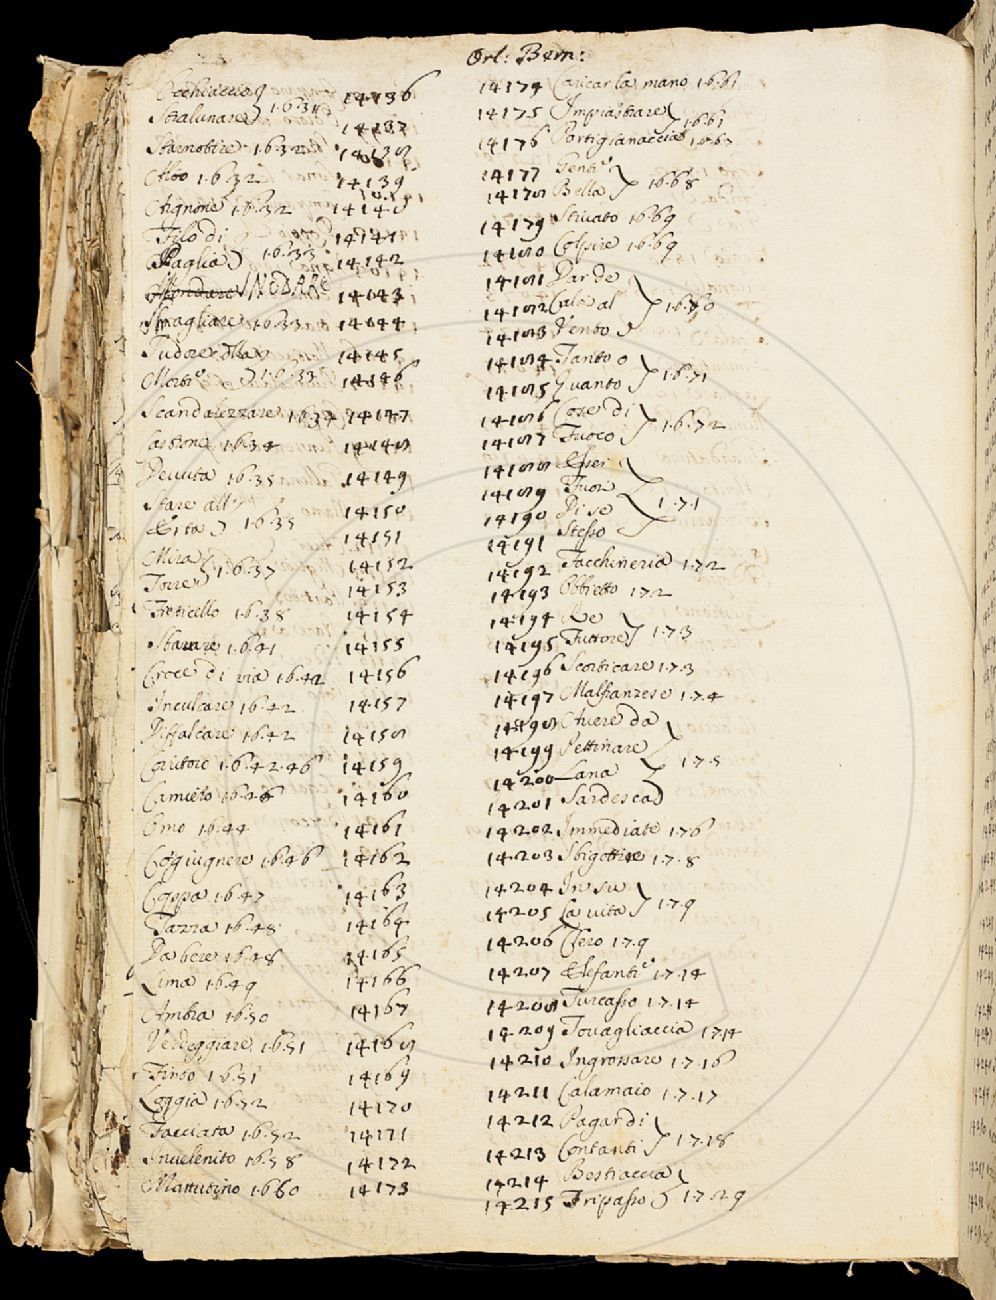 Orl: Bern:
Occhiaccio 14136
Stralunare } 1.6.31 14137
Starnotire 1.6.32 14138
Atto 1.6.32 14139
Atignone 1.6.32 14140
Filo di 14141
Paglia } 1.6.33 14142
SNODARE 14143
Smagliare 1.6.33 14144
14145
Morti } 1.6.33 14146
Scandalezzare 1.6.34 14147
1.6.34 14148
Devuta 1.6.35 14149
Stare all' 14150
Erta } 1.6.35 14151
Mira 14152
Torre } 1.6.37 14153
Fraticello 1.6.38 14154
1.6.41 14155
Croce di via 1.6.42 14156
Inculcare 1.6.42 14157
Diffalcare 1.6.42 14158
1.6.42.46 14159
Camieto 1.6.46 14160
Omo 1.6.44 14161
Cogiugnere 1.6.46 14162
Coppa 1.6.47 14163
Tazza 1.6.48 14164
Da bere 1.6.48 14165
Lima 1.6.49 14166
Ambra 1.6.50 14167
Verdeggiare 1.6.51 14168
Finto 1.6.51 14169
Loggia 1.6.52 14170
Facciata 1.6.52 14171
Invelenito 1.6.58 14172
Mattutino 1.6.60 14173
14174 Caricar la mano 1.6.61
14175 Impiastrare } 1.6.61
14176 Partigianaccia 1.6.63
14177 Genti
14178 Bella } 1.6.68
14179 Stivato 1.6.69
14180 Colpire 1.6.69
14181 Darde
14182 Calo al } 1.6.70
14183 Vento
14184 Tanto o
14185 Quanto } 1.6.71
14186 Cose di
14187 Fuoco } 1.6.72
14188 Esser
14189 Fuor
14190 Di se } 1.7.1
14191 Stesso
14192 Facchineria 1.7.2
14193 Obbietto 1.7.2
14194 Re
14195 Futtore } 1.7.3
14196 Scorticare 1.7.3
14197 Malfranzese 1.7.4
14198 Avere da
14199 Pettinare
14200 Lana } 1.7.5
14201 Sardesca
14202 Immediate 1.7.6
14203 Sbigottire 1.7.8
14204 In su
14205 La vita } 1.7.9
14206 Clero 1.7.9
14207 Elefanti 1.7.14
14208 Turcasso 1.7.14
14209 Tovagliaccia 1.7.14
14210 Ingrossare 1.7.16
14211 Calamaio 1.7.17
14212 Pagar di
14213 Contanti } 1.7.18
14214 Bestiaccia
14215 Tripasso } 1.7.29